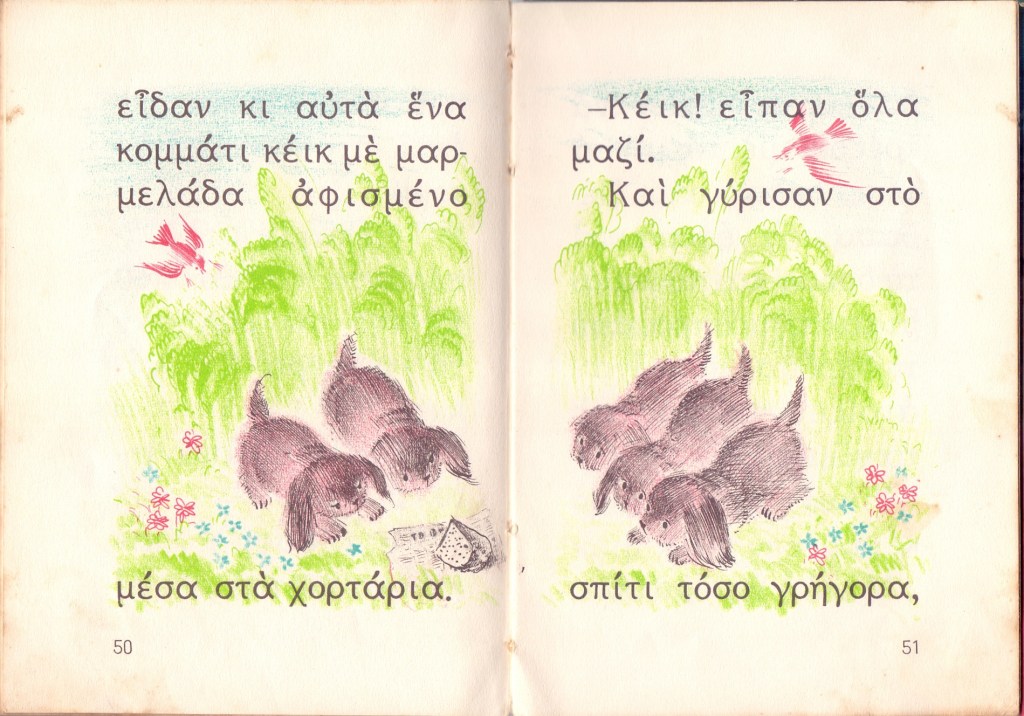 εἶδαν κι αὐτὰ ἕνα
κομμάτι κέικ μὲ μαρ-
μελάδα ἀφισμένο
μέσα στὰ χορτάρια.
50
–Κέικ! εἶπαν ὅλα
μαζί.
Καὶ γύρισαν στὸ
σπίτι τόσο γρήγορα,
51